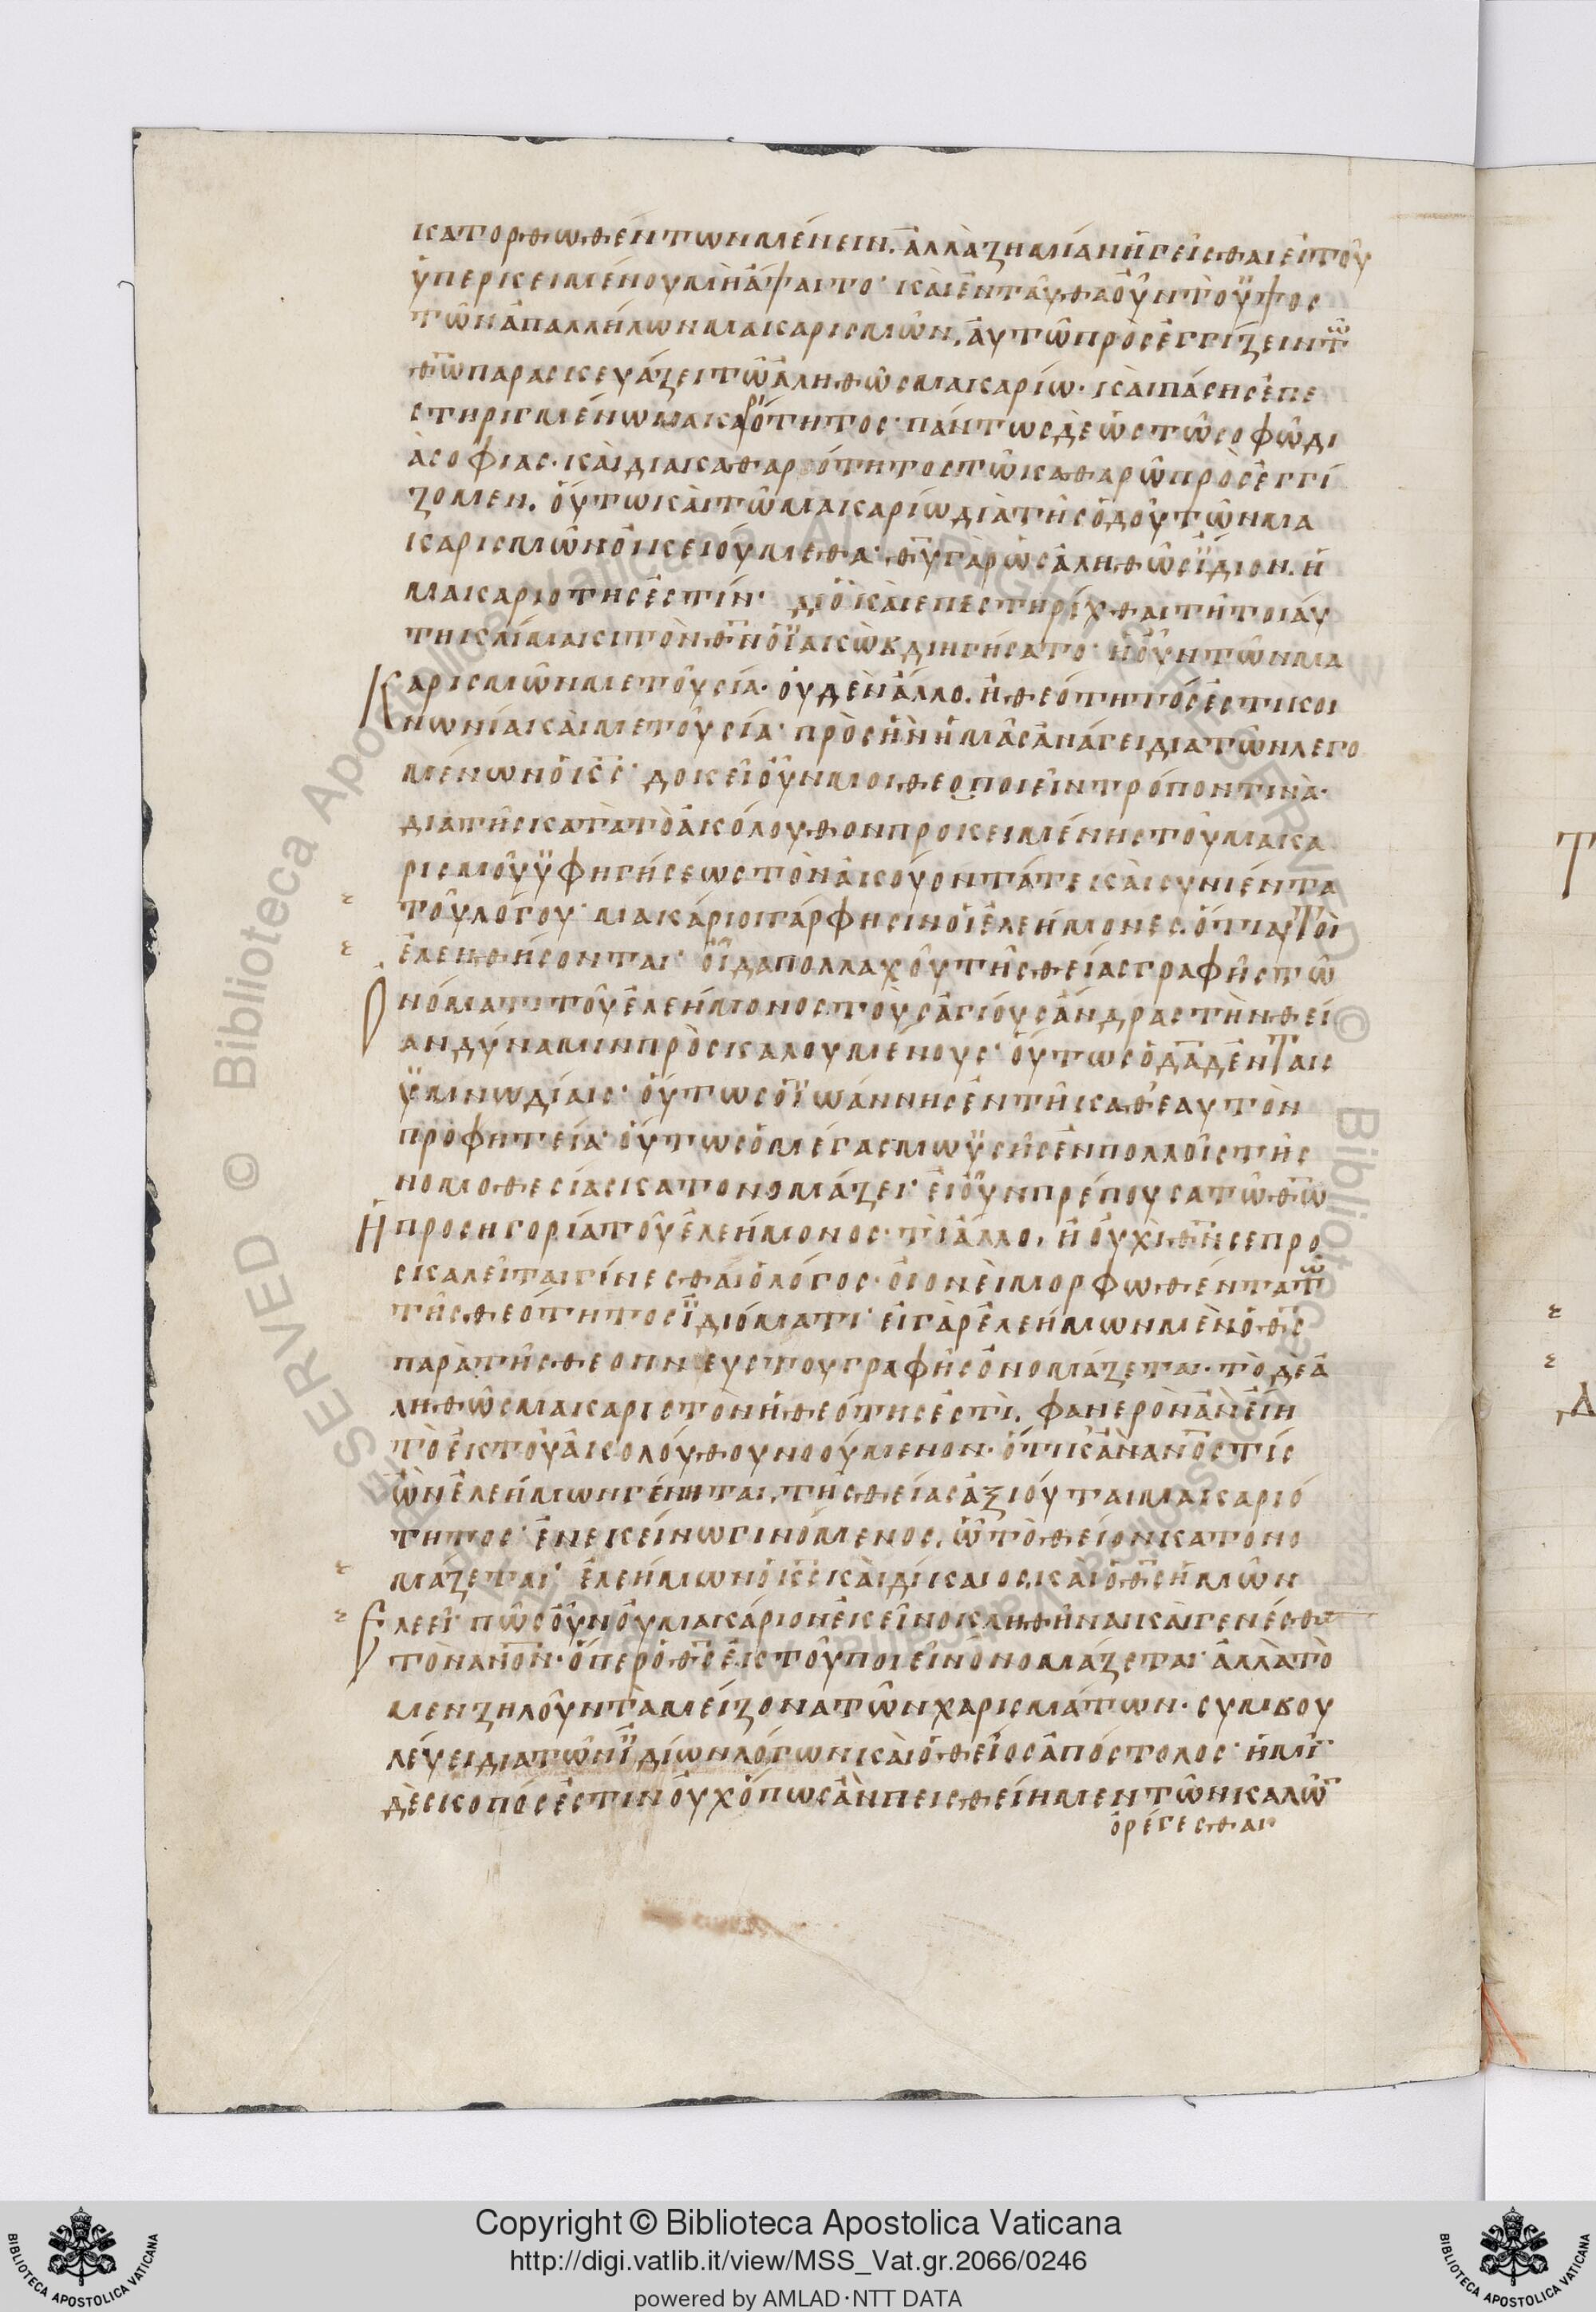 κατορθωθέντων μένειν. ἀλλὰ ζημίαν ἡγεῖσθαι εἰ τοῦ
ὑπερκειμένου μὴ ἅψαιτο· καὶ ἐνταῦθα οὖν τὸ ὕψος
τῶν ἀπαλλήλων μακαρισμῶν, αὐτῶ προσεγγίζειν τῶ
θῶ παρασκευάζει τῶ ἀληθῶς μακαρίω· καὶ πάσης ἐπε
στηριγμένω μακαριότητος· πάντως δὲ ὡς τῶ σοφῶ δι
ὰ σοφίας· καὶ διὰ καθαρότητος τῶ καθαρῶ προσεγγί
ζομεν. οὕτω καὶ τῶ μακαρίω διὰ τῆς ὁδοῦ τῶν μα
καρισμῶν οἰκειούμεθα· θυ γὰρ ὡς ἀληθῶς ἴδιον. ἡ
μακαριότης ἐστίν· διὸ καὶ ἐπεστηρίχθαι τῆ τοιαύ
τη κλίμακι τὸν θν ὁ ἰακὼβ διηγήσατο· ἡ οὖν τῶν μα
Καρισμῶν μετουσία· οὐδὲν ἄλλο. ἢ θεότητός ἐστι κοι
νωνία καὶ μετουσία· πρὸς ἣν ἡμᾶς ἀνάγει διὰ τῶν λεγο
μένων ὁ κς· δοκεῖ οὖν μοι θεοποιεῖν τρόπον τινὰ·
διὰ τῆς κατὰ τὸ ἀκόλουθον προκειμένης τοῦ μακα
ρισμοῦ ὑφηγήσεως τὸν ἀκούοντά τε καὶ συνιέντα
τοῦ λόγου· μακάριοι γάρ φησιν οἱ ἐλεήμονες. ὅτι αὐτοὶ
ἐλεηθήσονται· οἶδα πολλαχοῦ τῆς θείας γραφῆς τῶ
Ονόματι τοῦ ἐλεήμονος τοὺς ἁγίους ἄνδρας τὴν θεί
αν δύναμιν προσκαλουμένους· οὕτως ὁ δαδ ἐν ταις
ὑμνωδίαις· οὕτως ὁ ἰωάννης ἐν τῆς καθ εαυτὸν
προφητεία· οὕτως ὁ μέγας μωϋσῆς ἐν πολλοῖς τῆς
νομοθεσίας κατονομάζει· εἰ οὖν πρέπουσα τῶ θῶ
Η προσηγορία τοῦ ἐλεήμονος· τὶ ἄλλο, ἢ οὐχὶ θν σε προ
σκαλεῖται γίνεσθαι ὁ λόγος· οἱονεὶ μορφωθέντα τῶ
τῆς θεότητος ἰδιόματι· εἰ γὰρ ἐλεήμων μὲν ὁ θς
παρὰ τῆς θεοπνεύστου γραφῆς ὀνομάζεται· τὸ δὲ ἀ
ληθῶς μακαριστὸν ἡ θεότης ἐστὶ. φανερὸν ἂν εἴη
τὸ ἐκ τοῦ ἀκολούθου νοούμενον· ὅτι κἂν ανος τίς
ὢν ἐλεήμων γένηται, τῆς θείας ἀξιούται μακαριό
τητος· ἐν εκείνω γινόμενος. ὧ τὸ θεῖον κατονο
μάζεται· ἐλεήμων ὁ κς καὶ δίκαιος, καὶ ὁ θς ἡμῶν
Ελεεῖ· πῶς οὖν οὐ μακάριον ἐκεῖνο κληθῆναι καὶ γενέσθαι
τὸν ανον· ὅπερ ὁ θς ἐκ τοῦ ποιεῖν ὀνομάζεται· ἀλλὰ τὸ
μεν ζηλοῦν τὰ μείζονα τῶν χαρισμάτων· συμβου
λέυει διὰ τῶν ἰδίων λόγων καὶ ὁ θεῖος ἀπόστολος· ἡμῖν
δὲ σκοπός ἐστιν οὐχ ὅπως ἂν πεισθείημεν τῶν καλῶν
ὀρέγεσθαι
Copyright © Biblioteca Apostolica Vaticana
http://digi.vatlib.it/view/MSS_Vat.gr.2066/0246
powered by AMLAD·NTT DATA
BIBLIOTECA APOSTOLICA VATICANA
BIBLIOTECA APOSTOLICA VATICANA